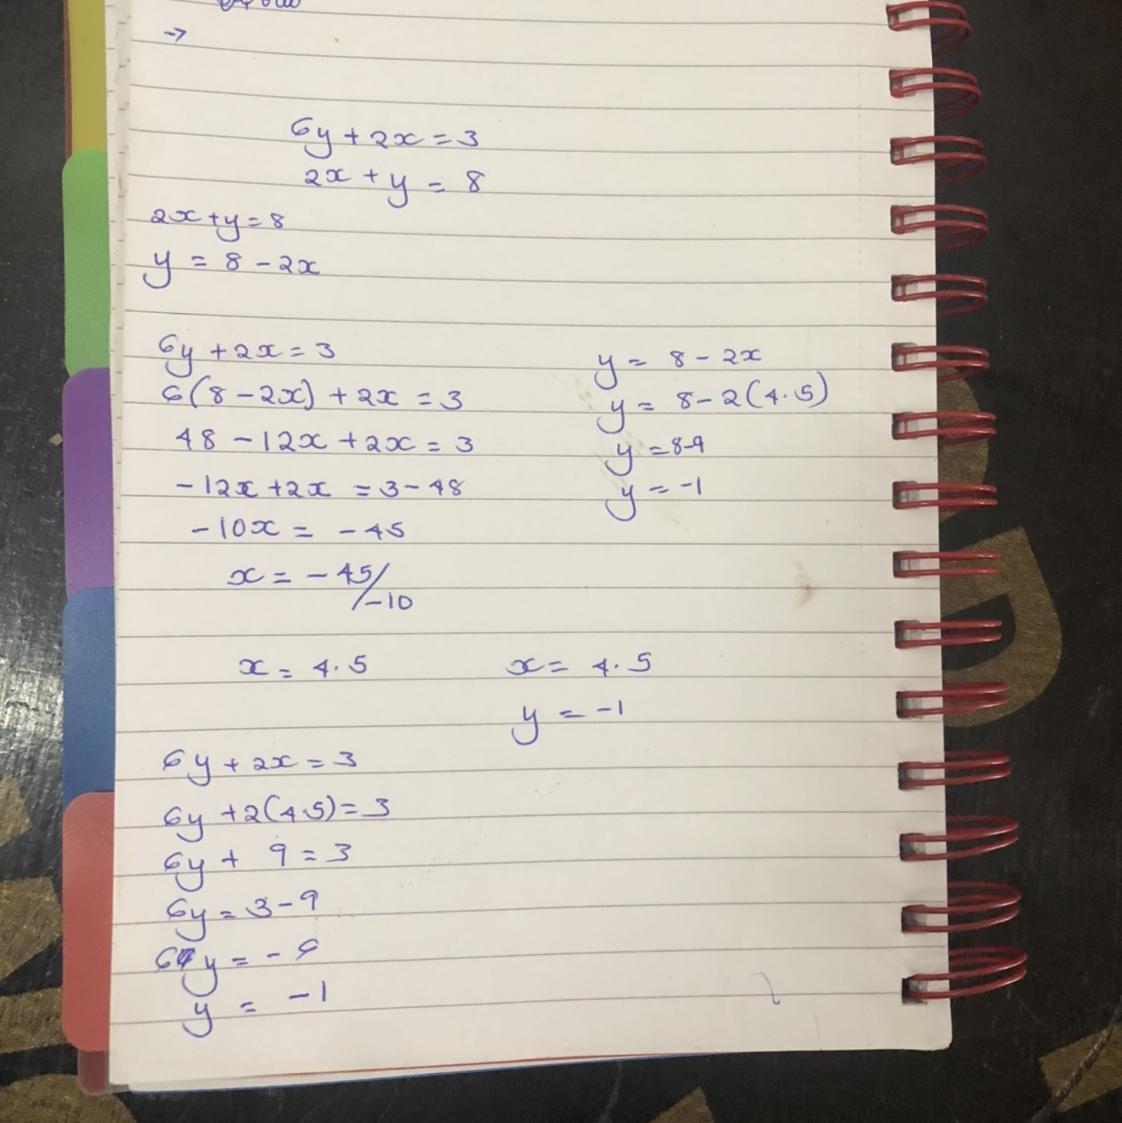 →
6y + 2x = 3
2x + y = 8
2x + y = 8
y = 8 - 2x
6y + 2x = 3
6(8 - 2x) + 2x = 3
48 - 12x + 2x = 3
- 12x + 2x = 3 - 48
- 10x = - 45
x = - 45/-10
x = 4.5
y = 8 - 2x
y = 8 - 2(4.5)
y = 8-9
y = -1
x = 4.5
y = -1
6y + 2x = 3
6y + 2(4.5) = 3
6y + 9 = 3
6y = 3 - 9
6y = - 6
y = -1